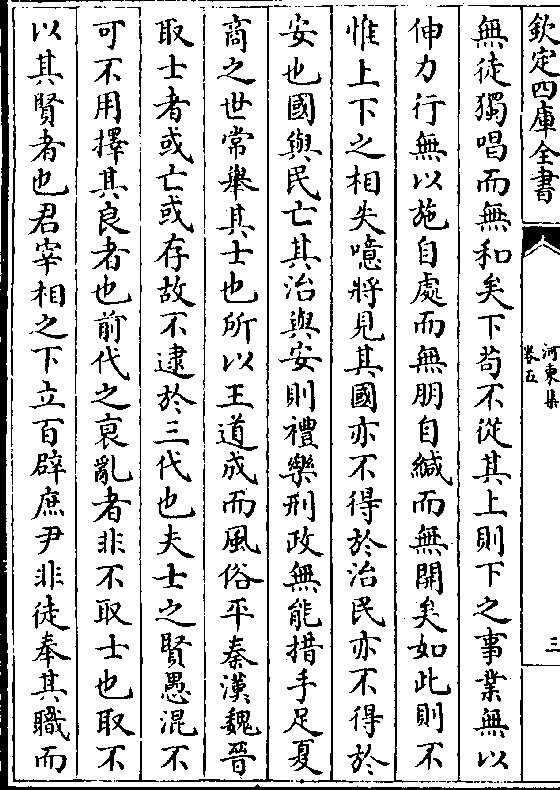 欽定四庫全書
河東集
卷五
三
無徒獨唱而無和矣下苟不從其上則下之事業無以
伸力行無以施自處而無朋自緘而無開矣如此則不
惟上下之相失噫將見其國亦不得於治民亦不得於
安也國與民亡其治與安則禮樂刑政無能措手足夏
商之世常舉其士也所以王道成而風俗平秦漢魏晉
取士者或亡或存故不逮於三代也夫士之賢愚混不
可不用擇其良者也前代之裒亂者非不取士也取不
以其賢者也君宰相之下立百辟庶尹非徒奉其職而